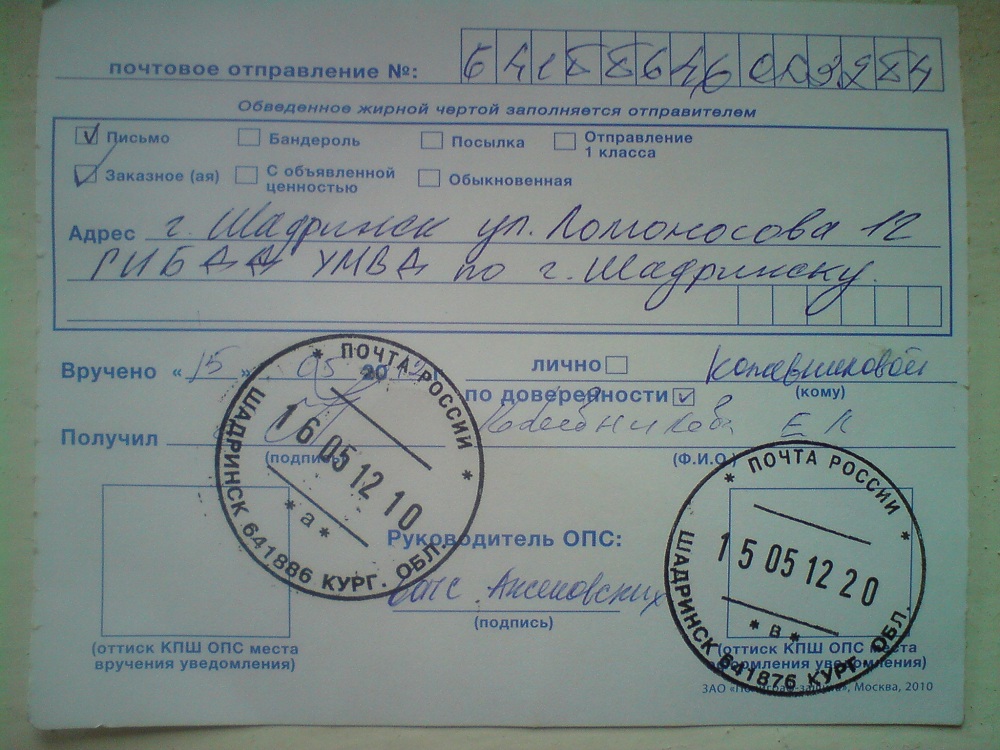 почтовое отправление №:
Обведенное жирной чертой заполняется отправителем
Письмо Бандероль Посылка Отправление 1 класса
Заказное (ая) С объявленной ценностью Обыкновенная
Адрес г. Шадринск ул. Ломоносова 12
ГИБДД УМВД по г. Шадринску.
Вручено «15» 05 20 лично
(кому)
по доверенности
Получил Е
(подпись) (Ф.И.О.)
ПОЧТА РОССИИ
16 05 12 10
* а *
ШАДРИНСК 641886 КУРГ. ОБЛ.
Руководитель ОПС:
(подпись)
ПОЧТА РОССИИ
15 05 12 20
* в *
ШАДРИНСК 641876 КУРГ. ОБЛ.
(оттиск КПШ ОПС места
вручения уведомления)
(оттиск КПШ ОПС места
оформления уведомления)
ЗАО «, Москва, 2010